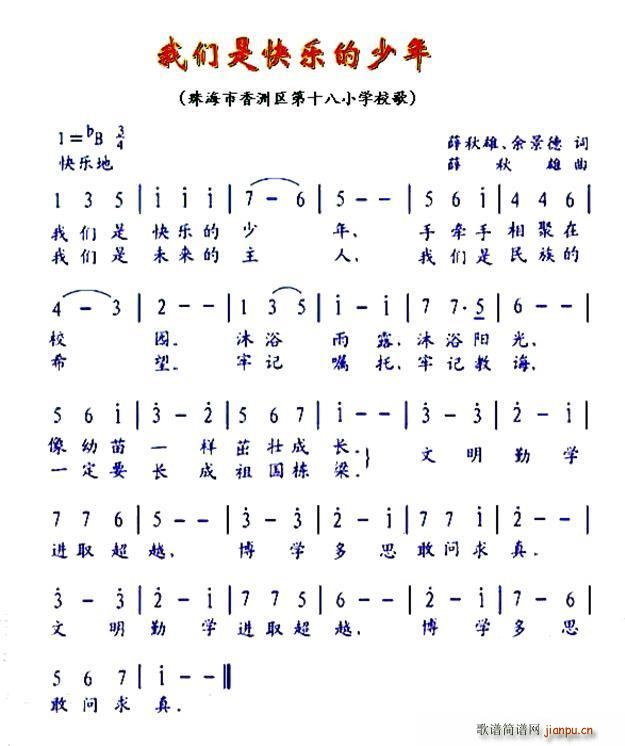 我们是快乐的少年
(珠海市香洲区第十八小学校歌)
1=bB 3/4 薛秋雄、余景德 词
快乐地 薛秋雄 曲
1 3 5 | i i i | 7 - 6 | 5 - - | 5 6 i | 4 4 6 |
我们是 快乐的 少 年、 手牵手 相聚在
我们是 未来的 主 人、 我们是 民族的
4 - 3 | 2 - - | 1 3 5 | i - i | 7 7· 5 | 6 - - |
校 园。 沐浴 雨露,沐浴阳光,
希 望。 牢记 嘱托,牢记教诲,
5 6 i | 3̇ - 2̇ | 5 6 7 | i - - | 3̇ - 3̇ | 2̇ - i |
像幼苗 一 样 茁壮成长。} 文 明 勤 学
一定要 长 成 祖国栋梁。
7 7 6 | 5 - - | 3̇ - 3̇ | 2̇ - i | 7 7 i | 2̇ - - |
进取超越, 博 学 多 思 敢问求真.
3̇ - 3̇ | 2̇ - i | 7 7 5 | 6 - - | 2̇ - i | 7 - 6 |
文 明 勤 学 进取超越, 博 学 多 思
5 6 7 | i - - ‖
敢问求真.
歌谱简谱网
jianpu.cn